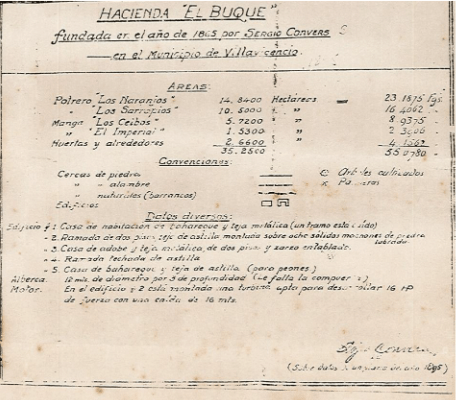 HACIENDA "EL BUQUE"
fundada en el año de 1865 por SERGIO CONVERS
en el Municipio de Villavicencio.
AREAS:
Potrero "Los Naranjos" 14.8400 Hectáreas 23.1875 Fgs.
" "Los Sarrapios" 10.5000 " 16.4062 "
Manga "Los Ceibos" 5.7200 " 8.9375 "
" "El Imperial" 1.5300 " 2.3906 "
Huertas y alrededores 2.6600 " 4.1562 "
35.2500 55.0780
Convenciones
Cercas de piedra Arboles cultivados
" " alambre
" naturales (barrancos)
Edificios
Datos diversos:
Edificio # 1. Casa de habitación de bahareque y teja metálica (un tramo está caído)
" 2. Ramada de dos pisos, teja de astilla montada sobre ocho sólidos mojones de piedra labrada.
" 3. Casa de adobe y teja metálica, de dos pisos y zarzo entablado.
" 4. Ramada techada de astilla
" 5. Casa de bahareque y teja de astilla (para peones)
Alberca. 12 mts. de diámetro por 3 de profundidad (Le falta la compuerta)
Motor. En el edificio # 2 está montada una turbina apta para desarrollar 16 HP
de fuerza con una caída de 16 mts.